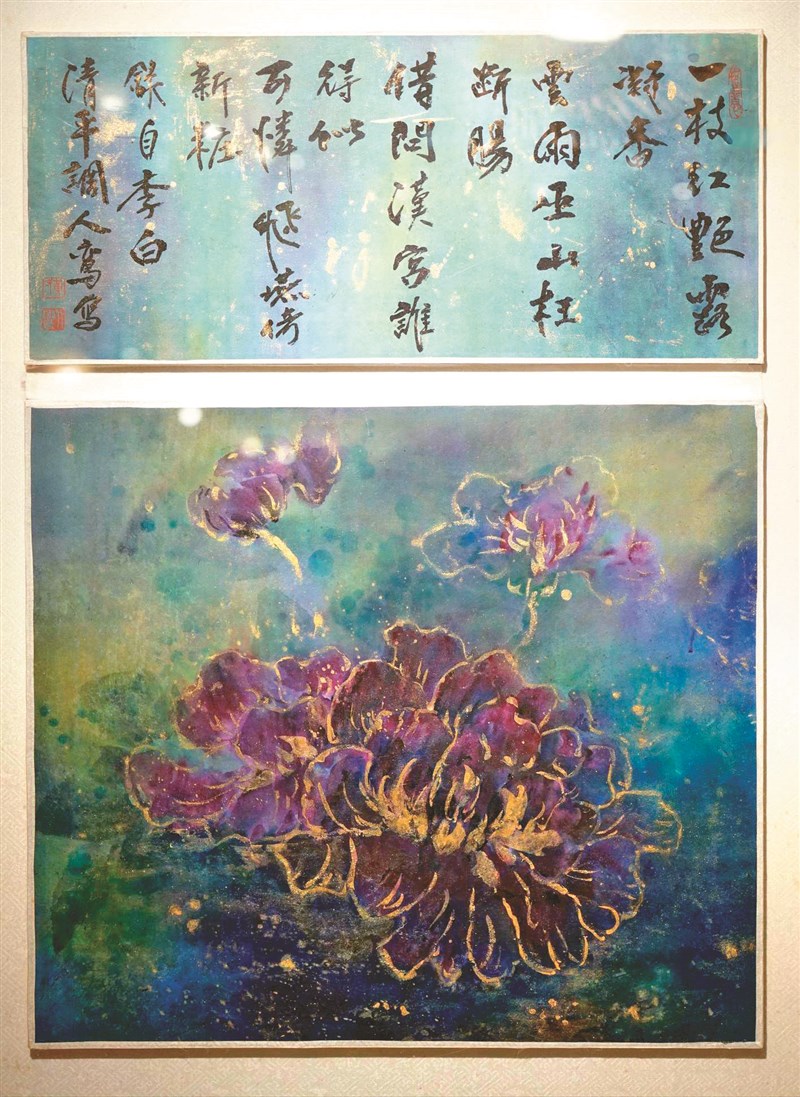 一枝紅艷露
凝香
雲雨巫山枉
断腸
借問漢宮誰
得似
可憐飛燕倚
新粧
錄自李白
清平調人鸞寫